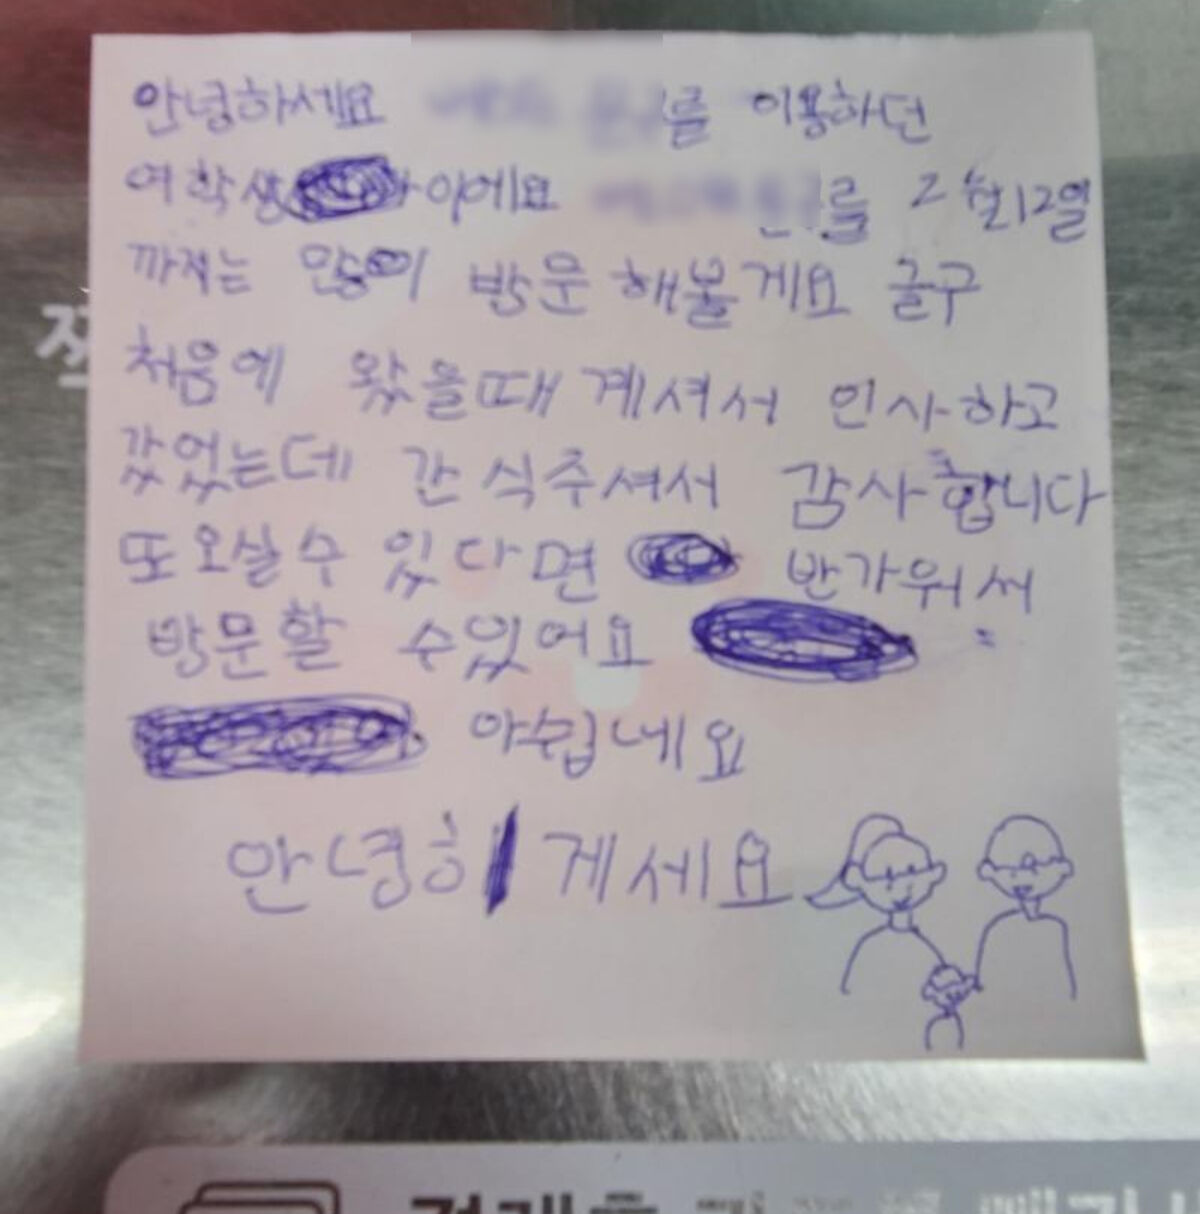 안녕하세요 를 이용하던
여학생 이에요 를 2월12일
까지는 많이 방문해볼게요 글구
처음에 왔을때 계셔서 인사하고
갔었는데 간식주셔서 감사합니다
또오실수 있다면 반가워서
방문할 수있어요
아쉽네요
안녕히 게세요